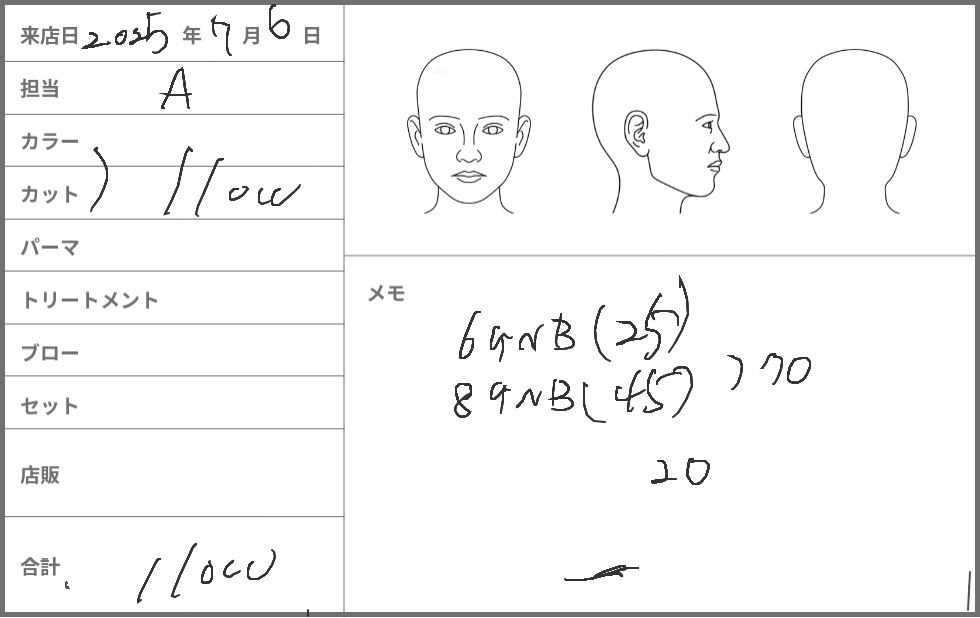 来店日 2025 年 7 月 6 日
担当 A
カラー
カット ) 11000
パーマ
トリートメント
ブロー
セット
店販
合計 11000
メモ
6GNB (25)
8GNB (45) ) 70
20